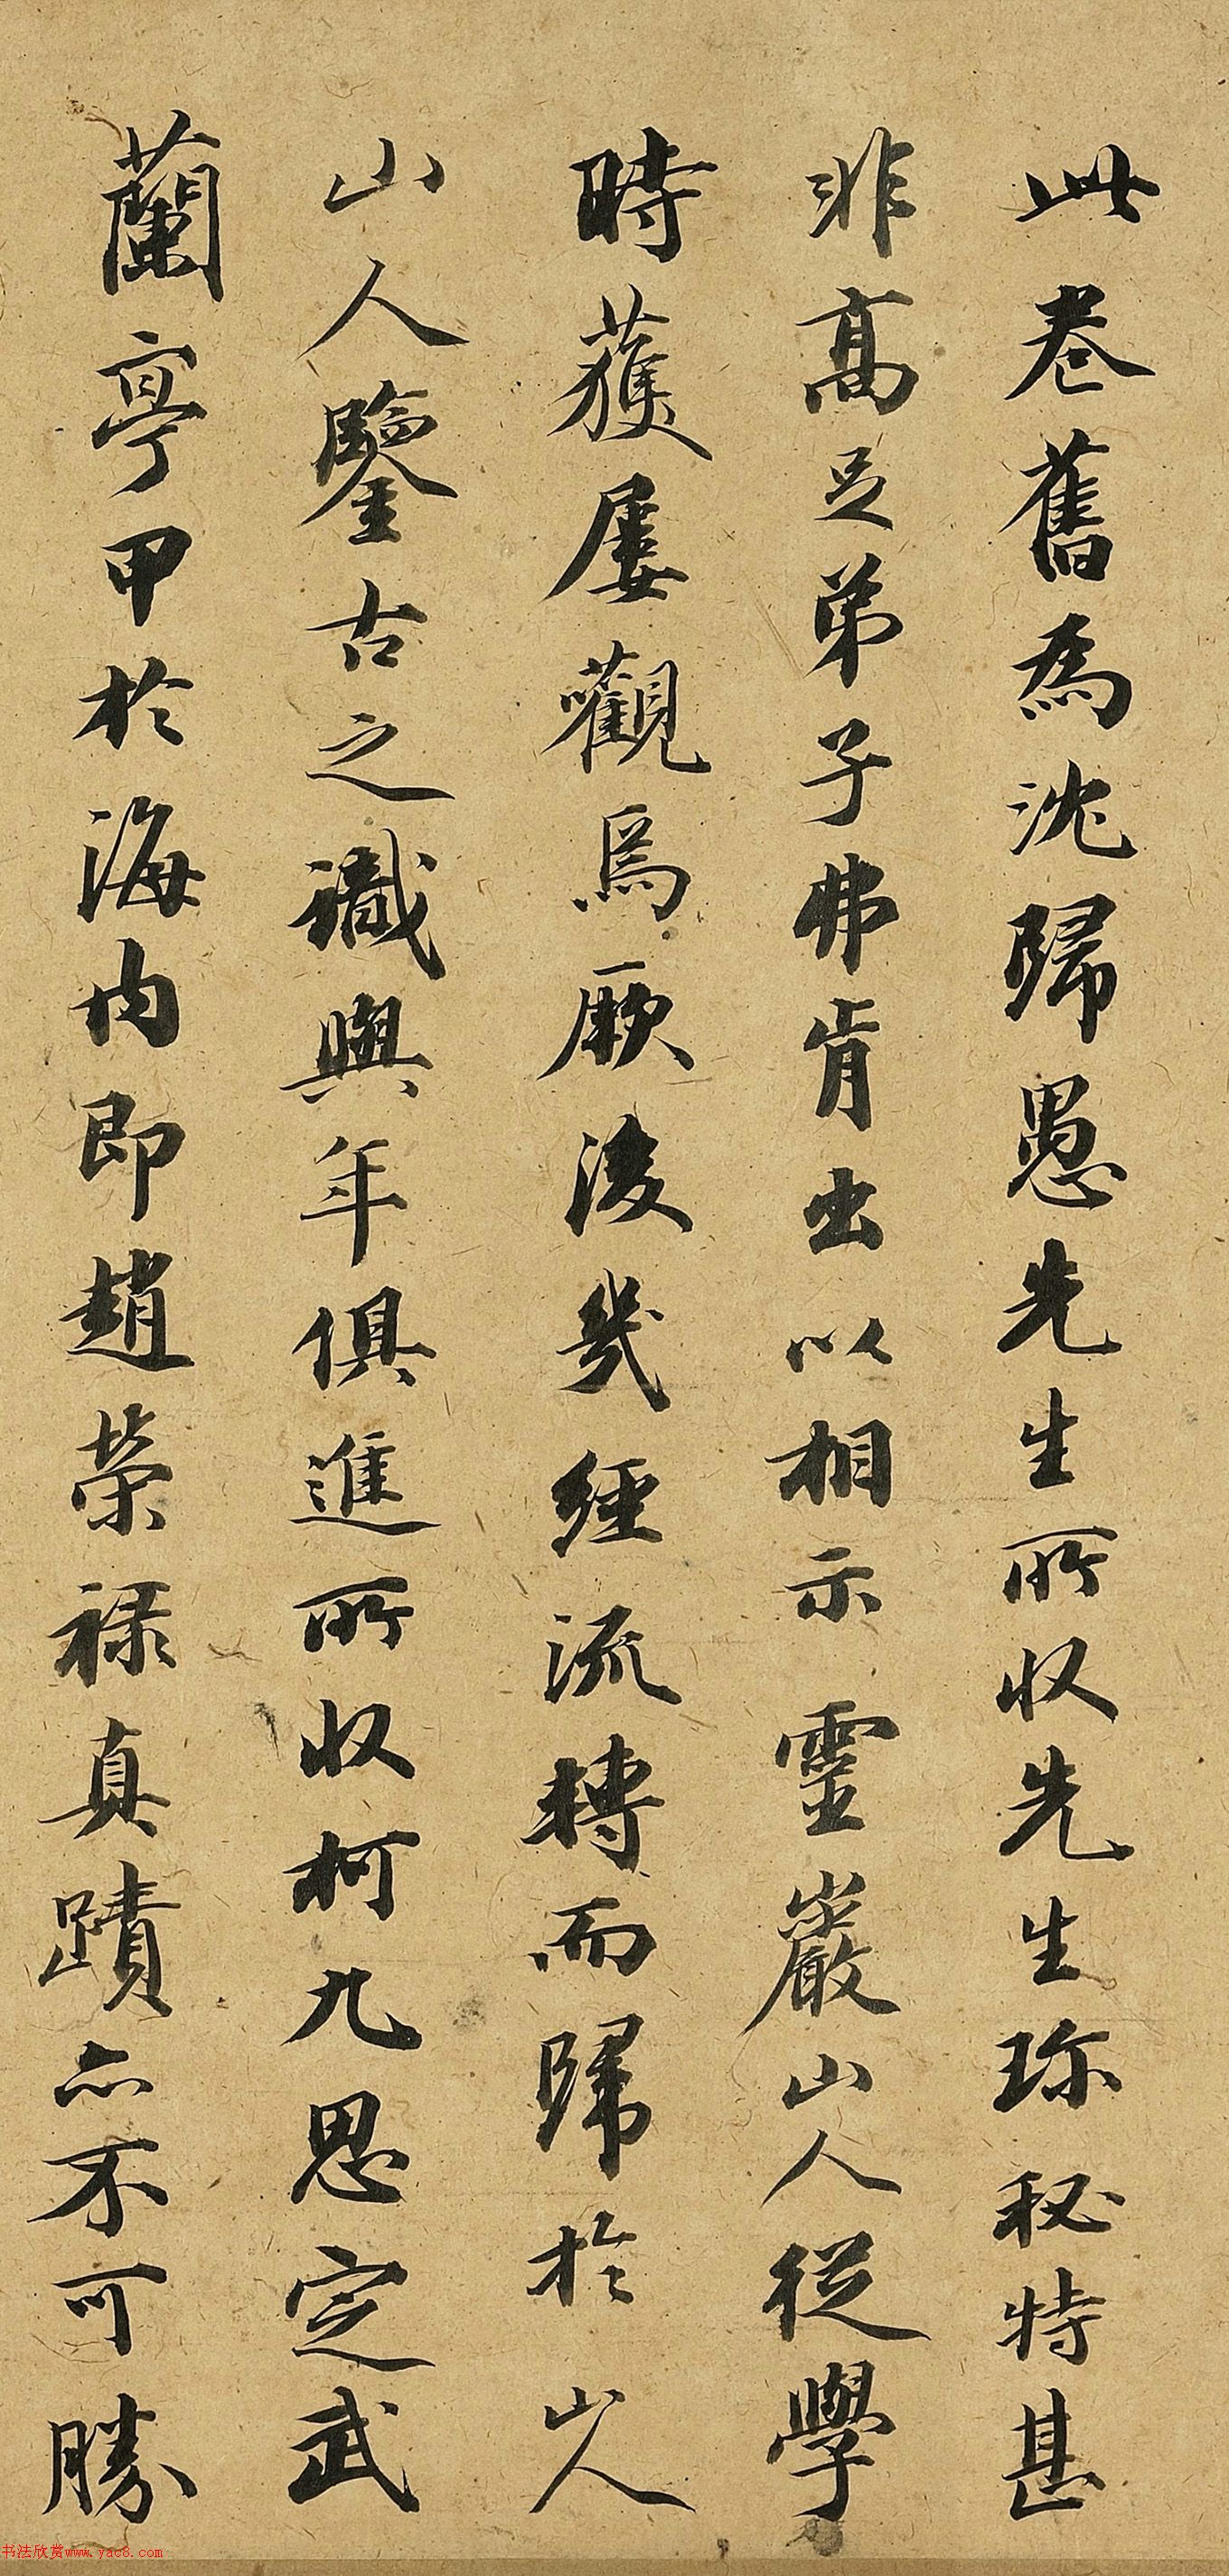 此卷舊為沈歸愚先生所收先生珎秘特甚
非高足弟子弗肯出以相示靈巖山人從學
時獲屢觀焉厥後幾經流轉而歸於山人
山人鑒古之識與年俱進所收柯九思定武
蘭亭甲於海内即趙榮祿真蹟亦不可勝
书法欣赏www.yac8.com